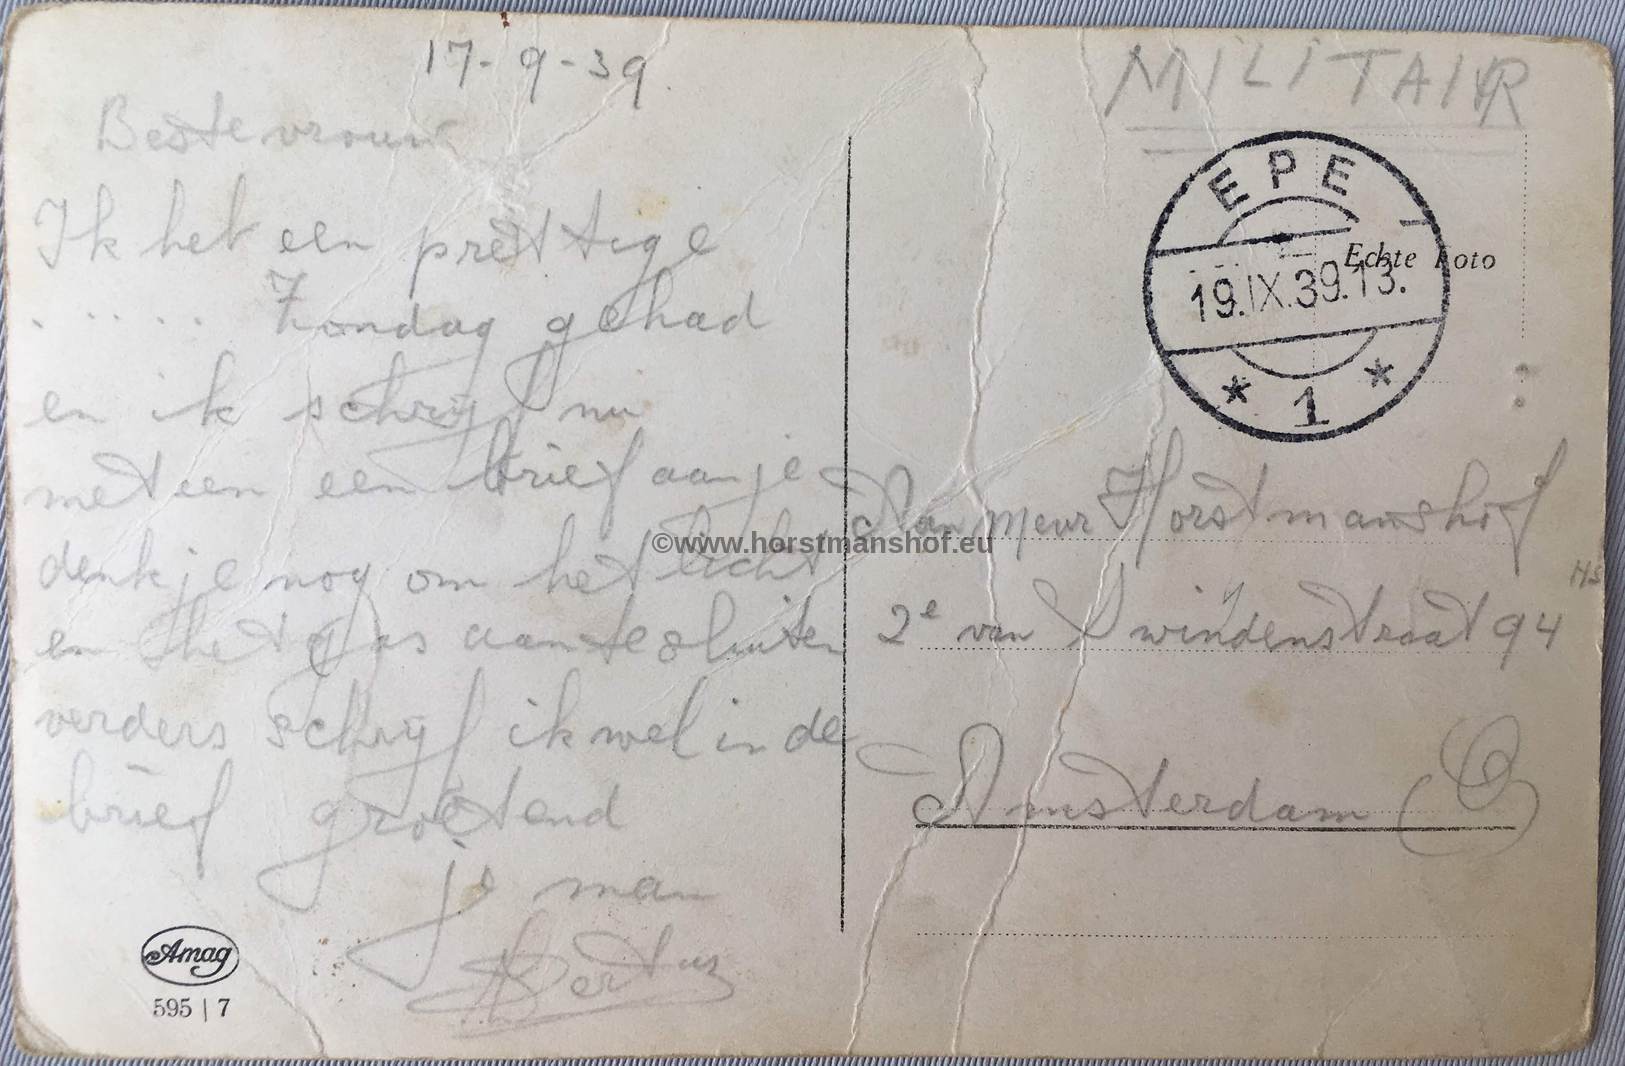 17-9-39
Beste vrouw
Ik heb een prettige
. . . . . Zondag gehad
en ik schrijf nu
meteen een brief aan je
denk je nog om het licht
en het gas aan te sluiten
verders schrijf ik wel in de
brief groetend
je man
Bertus
Amag
595 | 7
MILITAIR
EPE
19.IX.39.13.
* 1 *
Echte Foto
Aan Meur Horstmanshof
2e van Swindenstraat 94 HS
Amsterdam O
©www.horstmanshof.eu